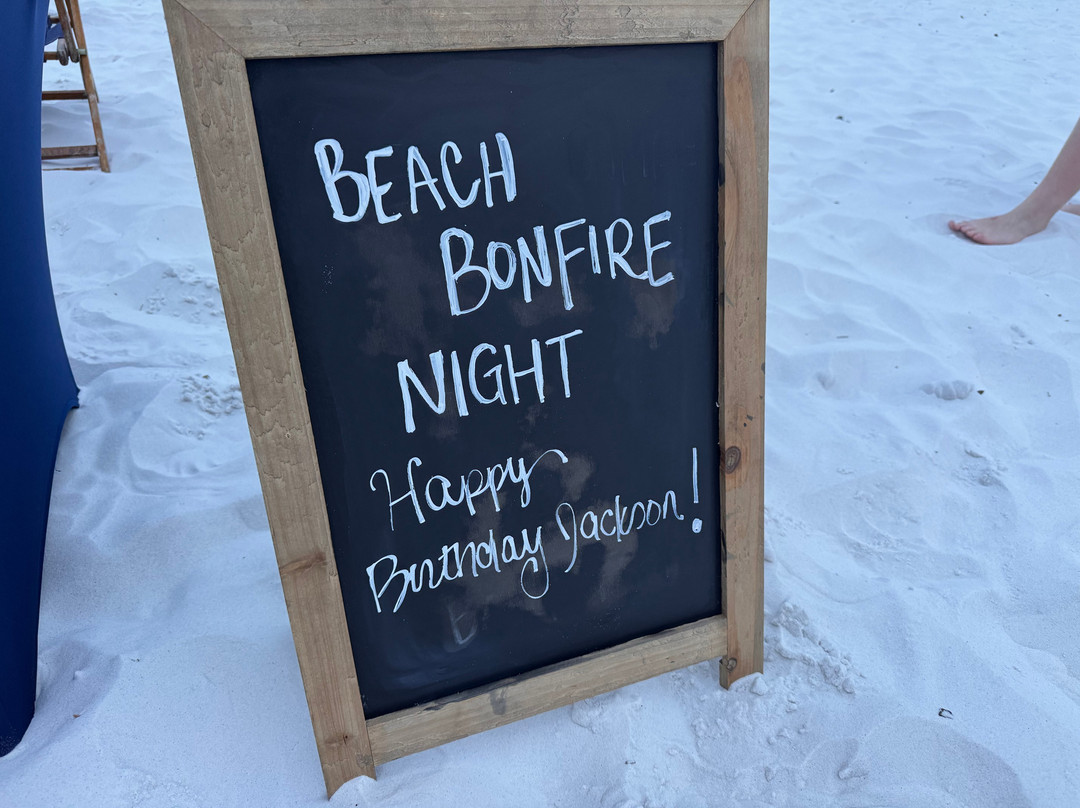 BEACH
BONFIRE
NIGHT
Happy
Birthday Jackson!